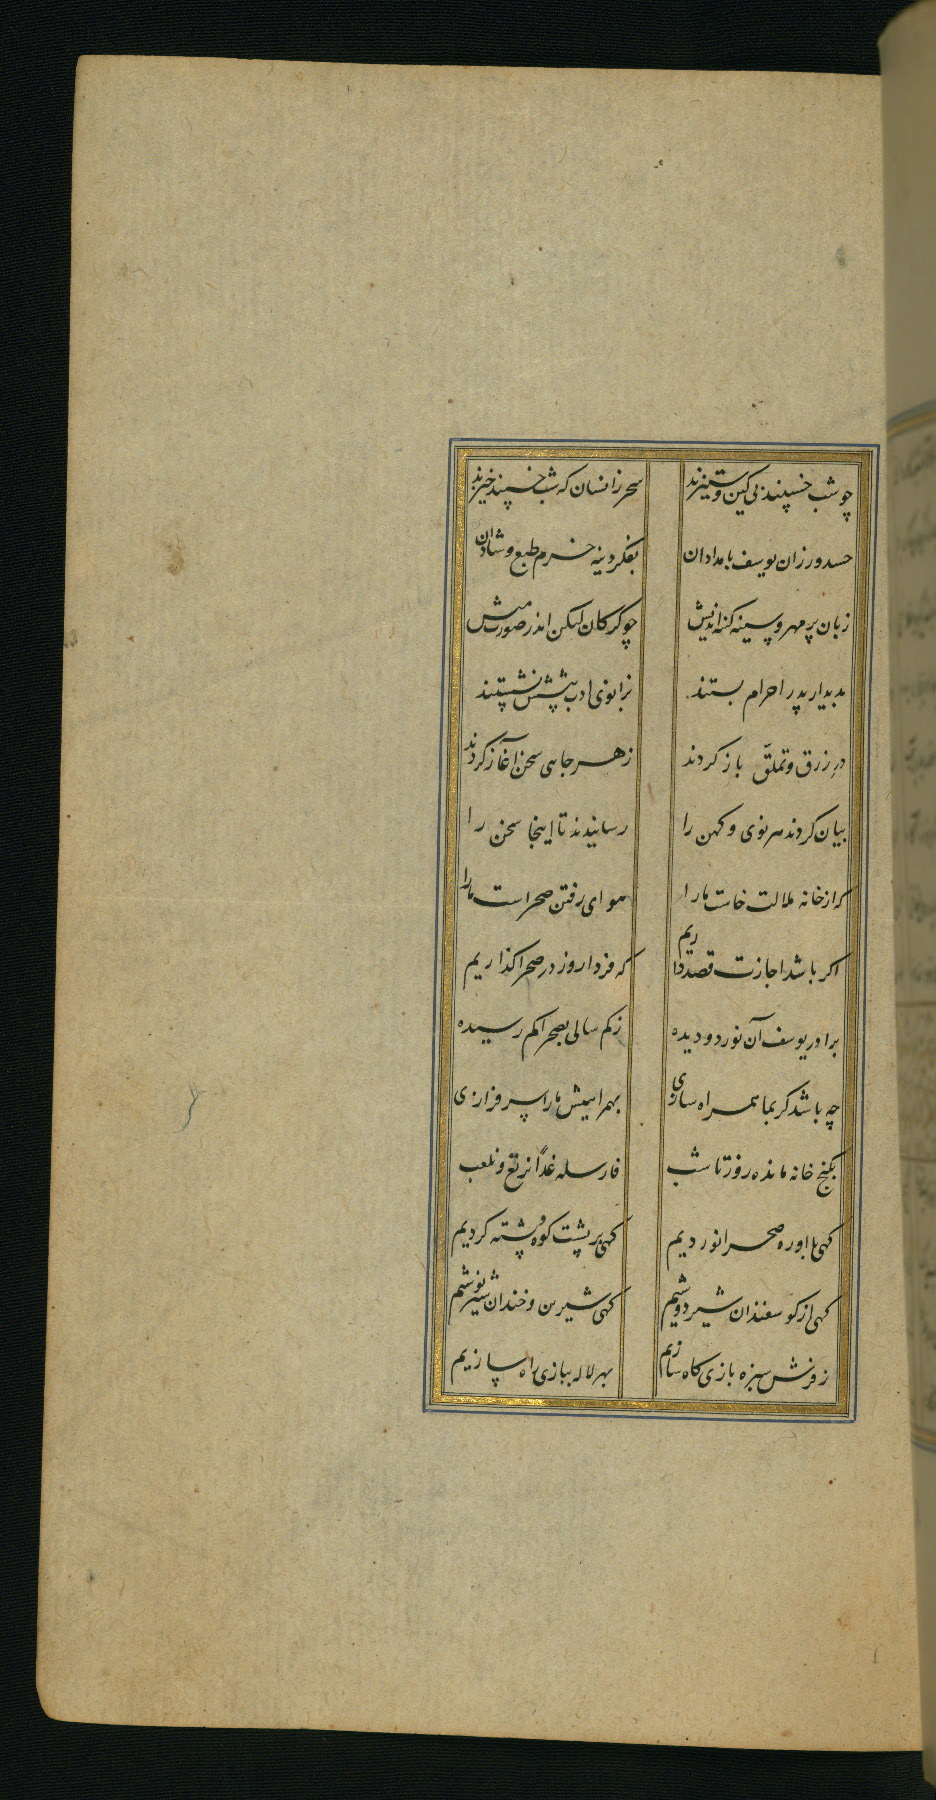 چو شب خسپند بی کین و ستیزند سحر زانسان که شب خسپند خیزند
حسدورزان یوسف بامدادان بفکر دینه خرم طبع و شادان
زبان پر مهر و سینه کینه اندیش چو گرکان لیکن اندر صورت میش
بدیدار پدر احرام بستند بزانوی ادب پیشش نشستند
در زرق و تملّق باز کردند ز هر جایی سخن آغاز کردند
بیان کردند هر نوی و کهن را رسانیدند تا اینجا سخن را
که از خانه ملالت خاست ما را هوای رفتن صحراست ما را
اکر باشد اجازت قصد داریم که فردا روز در صحرا گذاریم
برادر یوسف آن نور دو دیده ز کم سالی بصحرا کم رسیده
چه باشد کر بما همراه سازی بهمراهیش ما را سر فرازی
بکنج خانه مانده روز تا شب فارسله غداً نرتع و نلعب
کهی با او ره صحرا نوردیم کهی بر پشت کوه و پشته کردیم
کهی از کوسفندان شیر دوشیم کهی شیرین و خندان شیر نوشیم
ز فرش سبزه بازی کاه سازیم بهر لاله ببازی راه سازیم